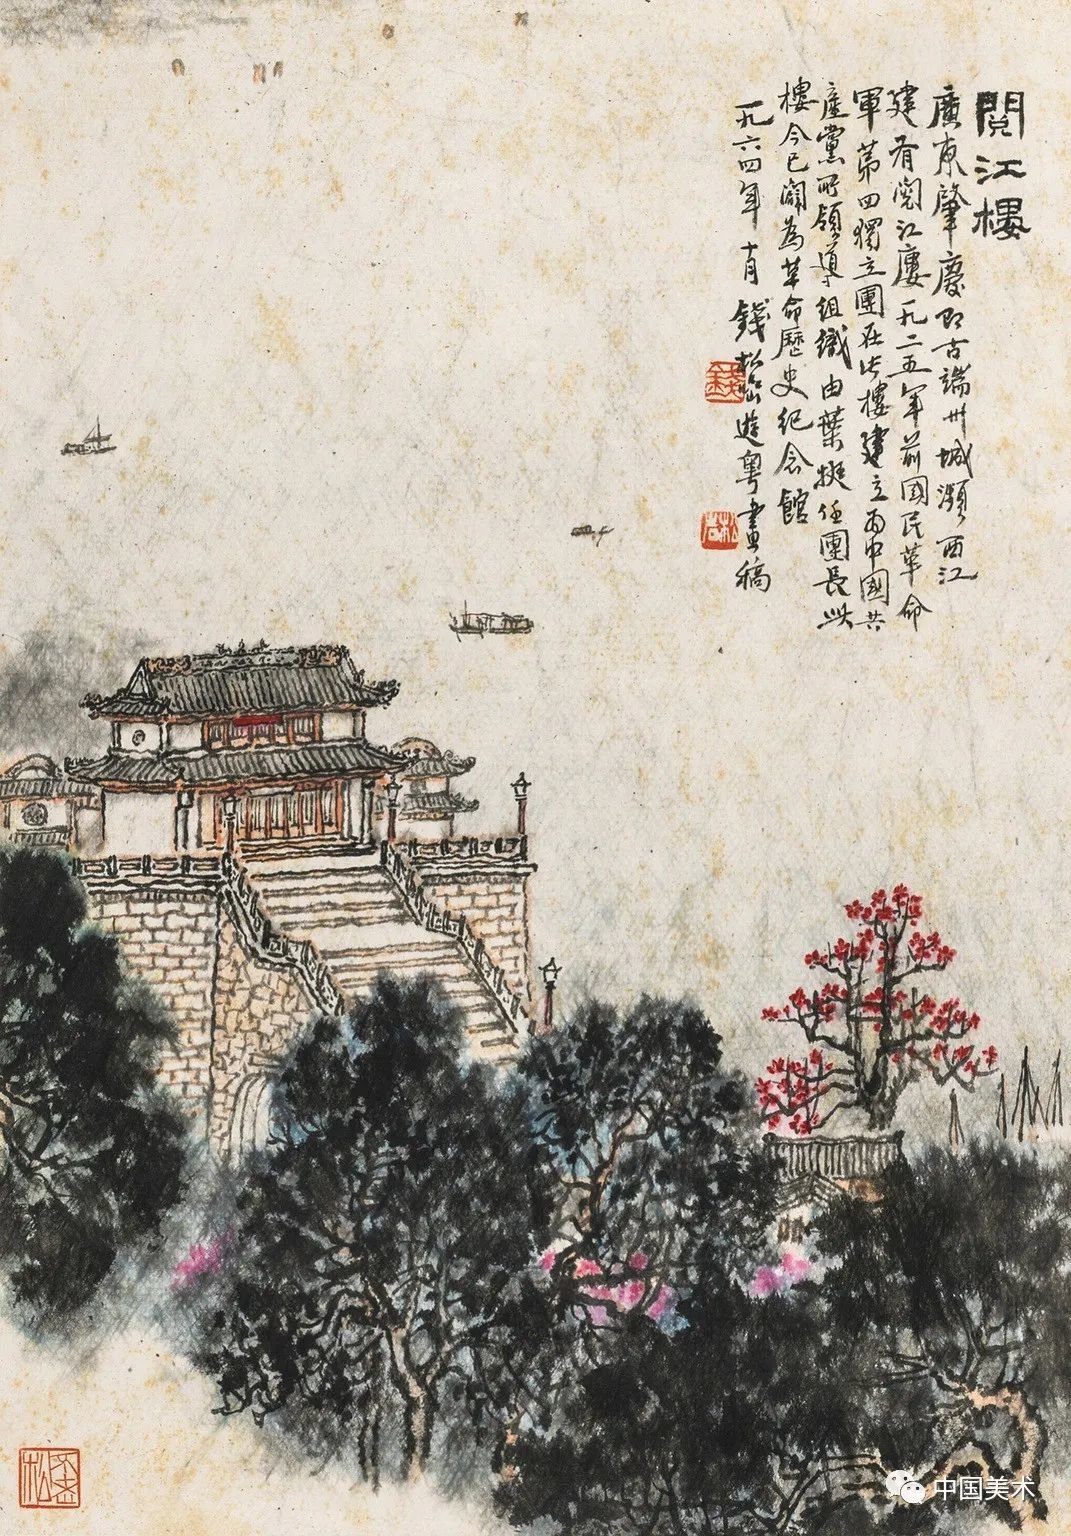 閱江樓
廣東肇慶即古端州城瀕西江
建有閱江樓一九二五年前國民革命
軍第四獨立團在此樓建立為中國共
產黨所領導組織由葉挺任團長此
樓今已闢為革命歷史紀念館
一九六四年十月錢松喦遊粵畫稿
錢
松喦
中国美术